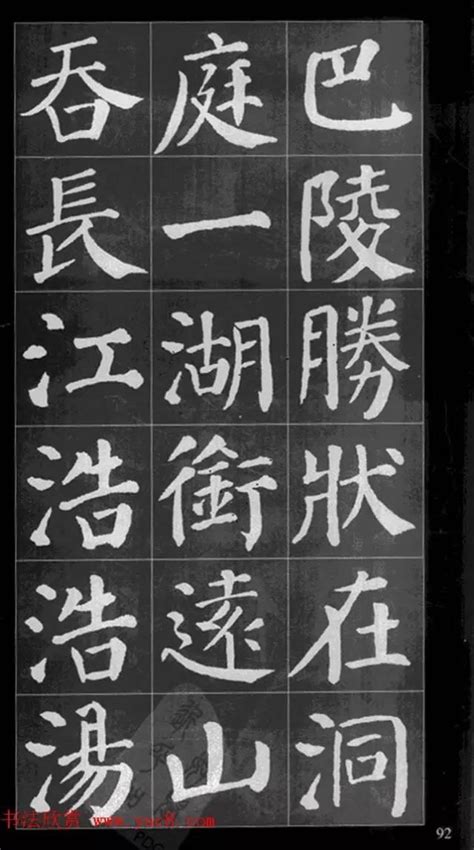 巴陵勝狀在洞
庭一湖銜遠山
吞長江浩浩湯
书法欣赏 www.yac8.com
92